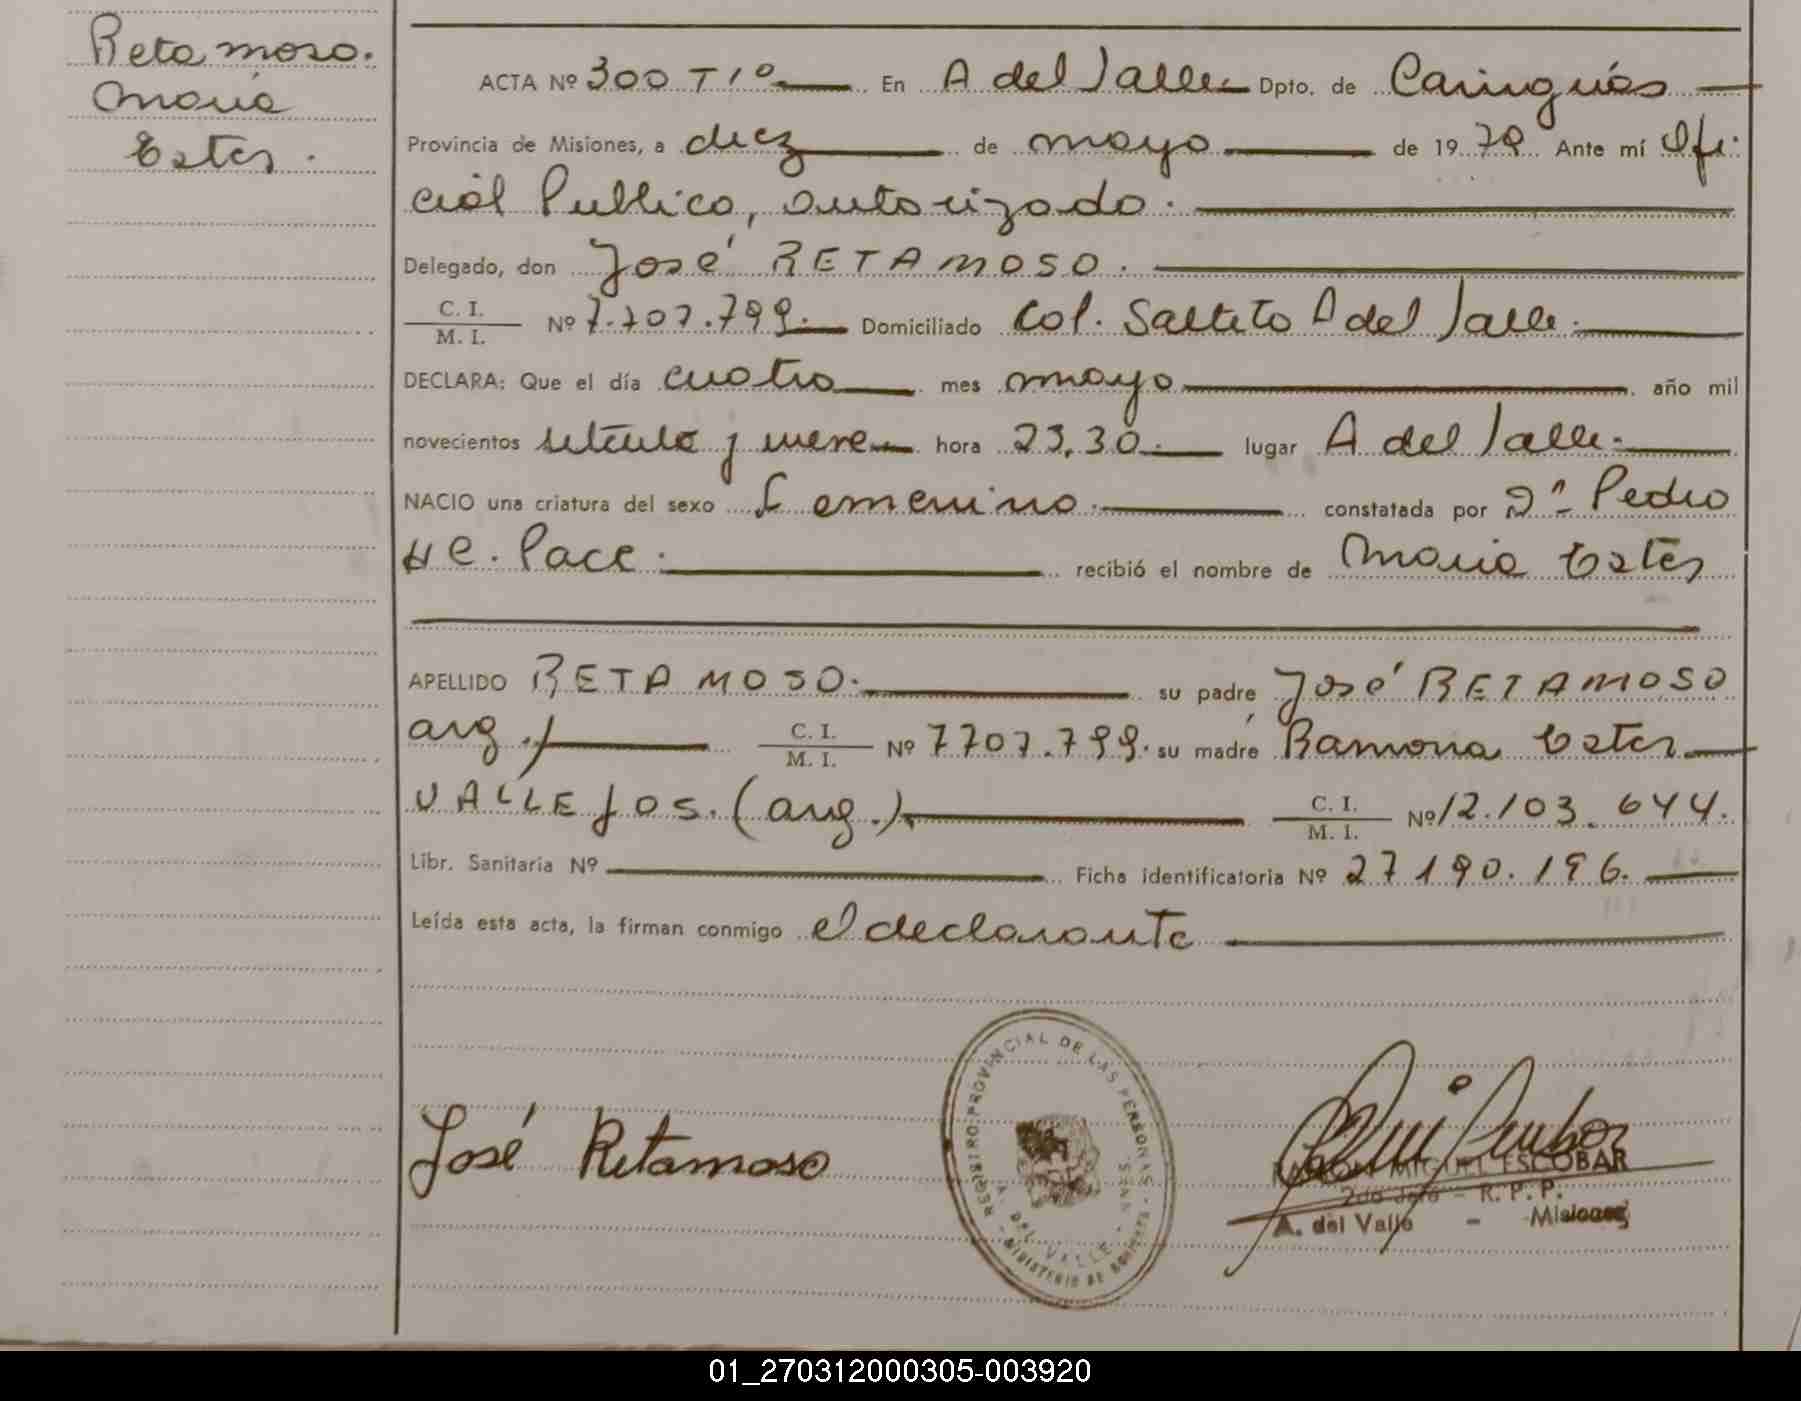 Retamoso.
María
Ester.
ACTA Nº 300 T1º En A del Valle Dpto. de Cainguás
Provincia de Misiones, a diez de mayo de 1979 Ante mí Ofi-
cial Publico, autorizado.
Delegado, don José RETAMOSO.
C. I.
M. I. Nº 7.707.799. Domiciliado Col. Saltito A del Valle.
DECLARA: Que el día cuatro mes mayo año mil
novecientos setenta y nueve hora 23,30. lugar A del Valle.
NACIO una criatura del sexo Femenino. constatada por Dn Pedro
H C. Pace. recibió el nombre de María Ester
APELLIDO RETAMOSO. su padre José RETAMOSO
arg. C. I.
M. I. Nº 7707.799. su madre Ramona Ester
VALLEJOS. (arg.). C. I.
M. I. Nº 12.103.644.
Libr. Sanitaria Nº Ficha identificatoria Nº 27190.196.
Leída esta acta, la firman conmigo el declarante
José Retamoso
REGISTRO PROVINCIAL DE LAS PERSONAS - MNES.
A. DEL VALLE - MINISTERIO DE
RAMON MIGUEL ESCOBAR
2do Jefe - R. P. P.
A. del Valle - Misiones
01_270312000305-003920